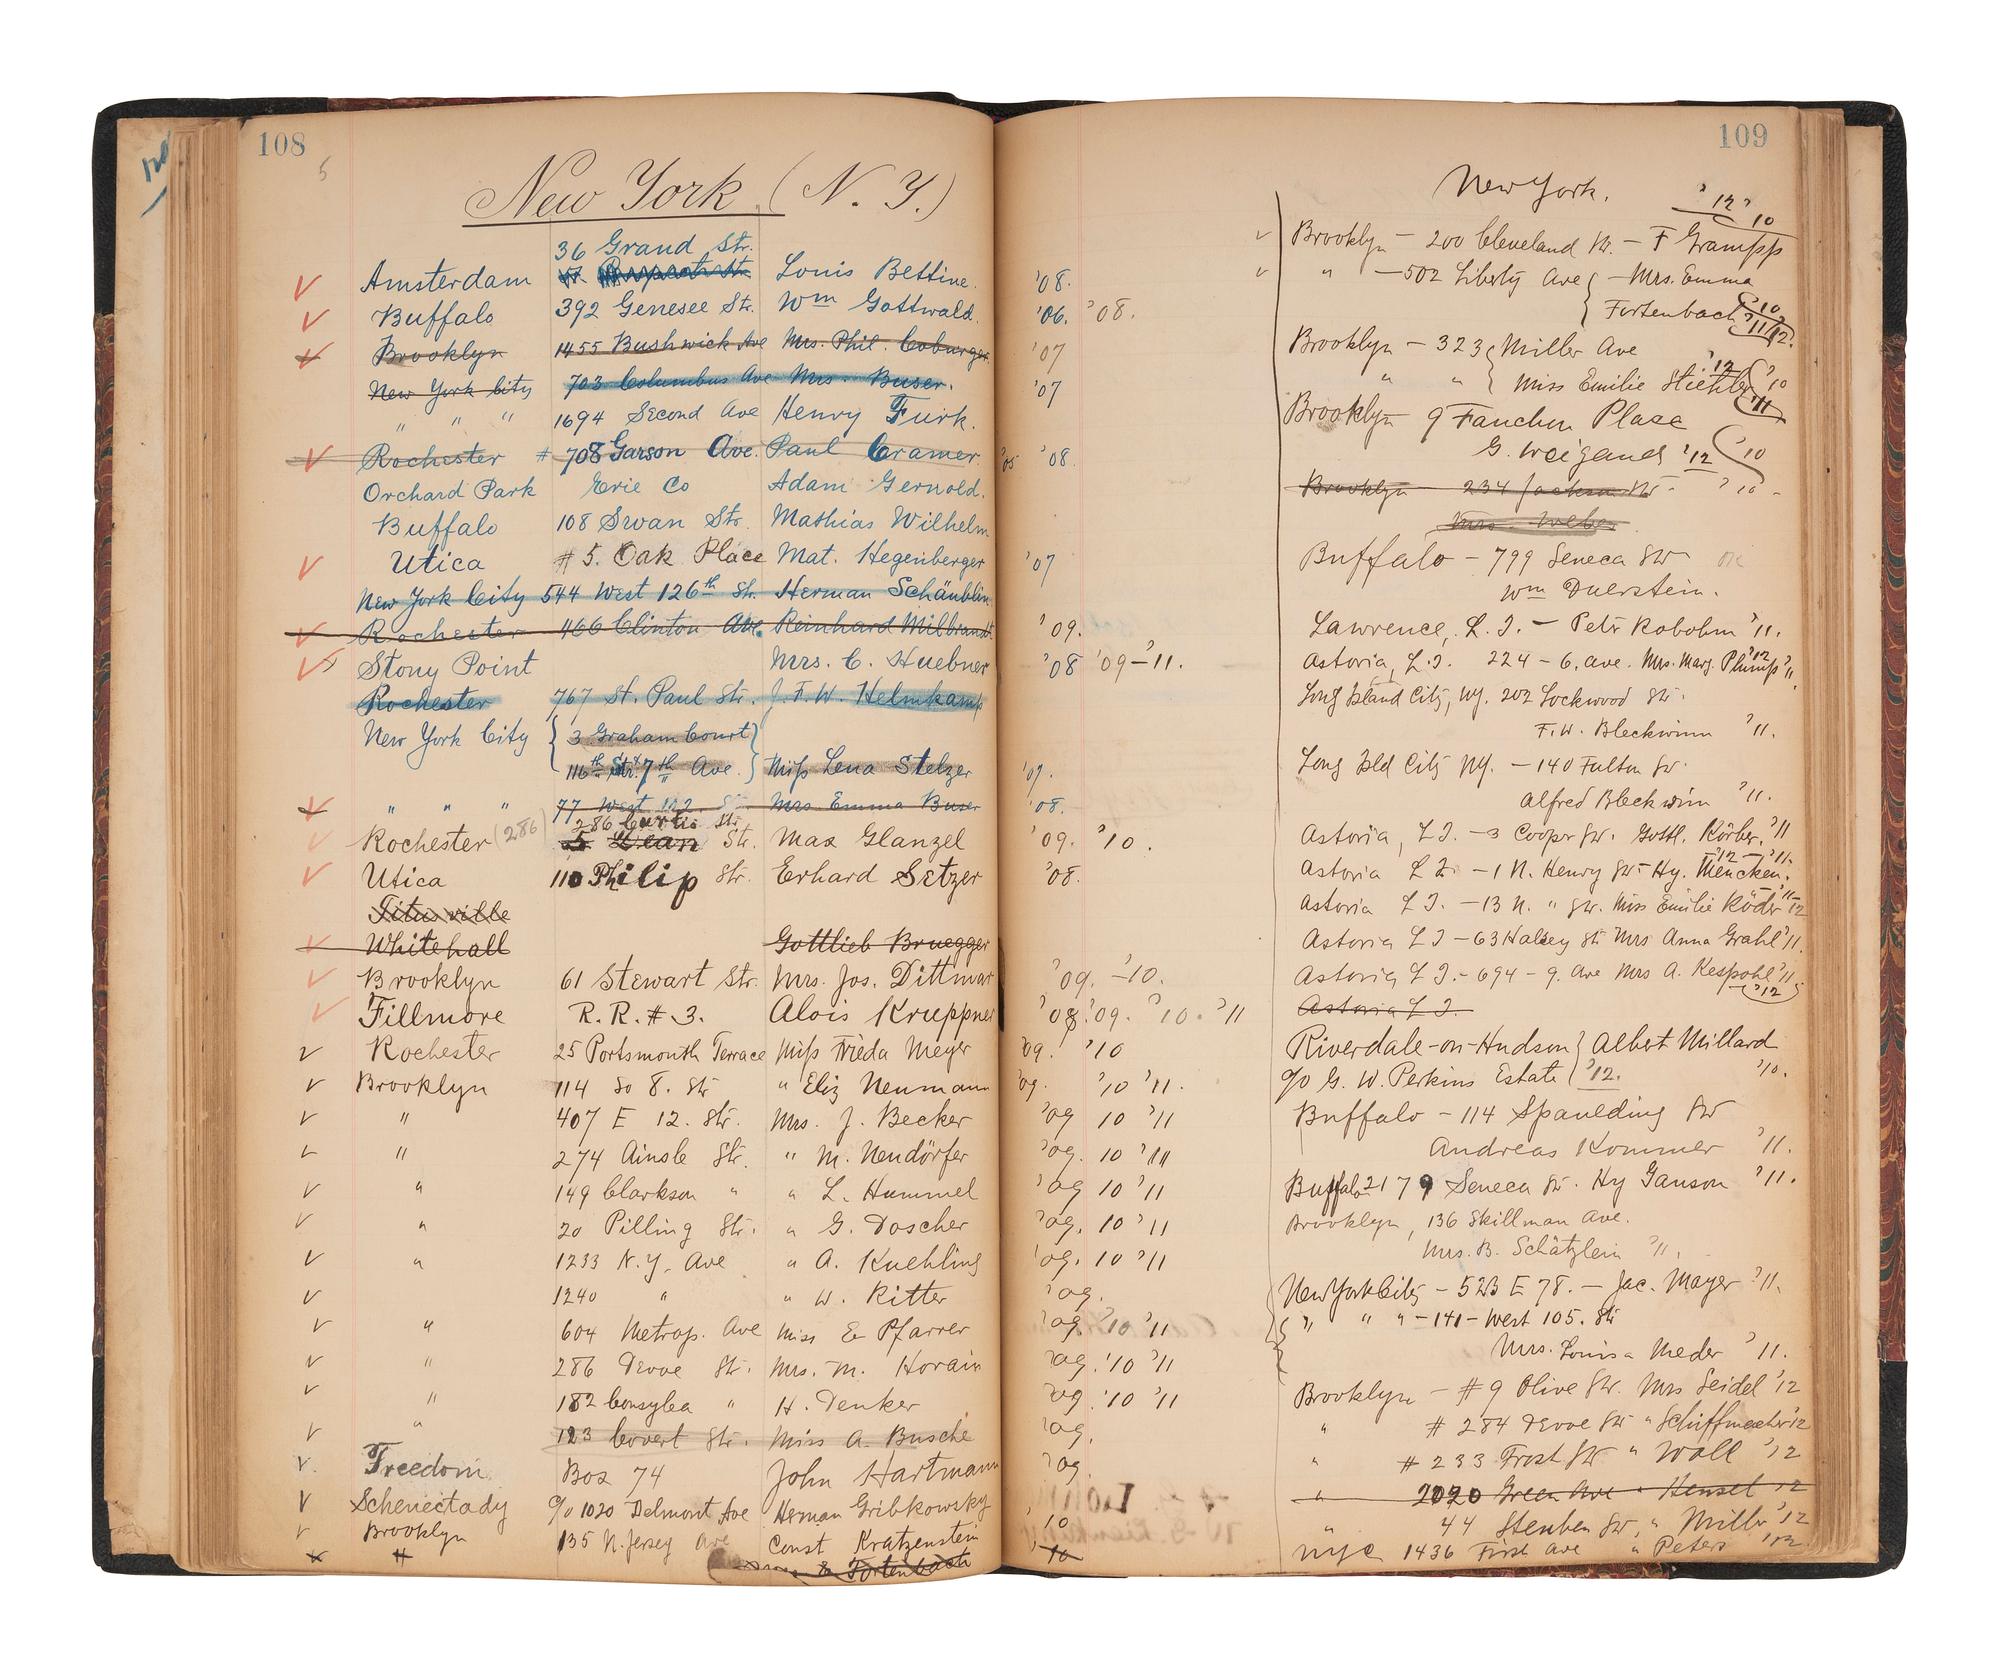 108
5
New York (N. Y.)
36 Grand Str.
Amsterdam Louis Bettine. '08.
Buffalo 392 Genesee Str. Wm Gottwald. '06. '08.
Brooklyn 1455 Bushwick Ave Mrs. Phil. Coburger '07
New York City 703 Columbus Ave Mrs. Buser. '07
" " " 1694 Second Ave Henry Furk.
Rochester # 708 Garson Ave. Paul Cramer '05 '08
Orchard Park Erie Co Adam Gernold.
Buffalo 108 Swan Str. Mathias Wilhelm
Utica # 5. Oak Place Mat. Hegenberger '07
New York City 544 West 126th Str. Herman Schäublin
Rochester 466 Clinton Ave. Reinhard Milbrandt '09.
Stony Point Mrs. C. Huebner '08 '09-'11.
Rochester 767 St. Paul Str. J. F. W. Helmkamp
New York City { 3 Graham Court }
116th Str. & 7th Ave. } Miss Lena Stelzer '07.
" " " 77 West 102. St. Mrs. Emma Buser '08.
286 Curtis Str.
Rochester (286) 5 Dean Str. Max Glanzel '09. '10.
Utica 110 Philip Str. Erhard Setzer '08.
Titusville
Whitehall Gottlieb Bruegger
Brooklyn 61 Stewart Str. Mrs. Jos. Dittmar '09. -'10.
Fillmore R. R. # 3. Alois Kruppner '08. '09. '10. '11
Rochester 25 Portsmouth Terrace Miss Frieda Meyer '09. '10
Brooklyn 114 So 8. Str " Eliz Neumann '09. '10 '11.
" 407 E 12. Str. Mrs. J. Becker '09 10 '11
" 274 Ainslie Str. " M. Neudörfer '09. 10 '11
" 149 Clarkson " " L. Hummel '09 10 '11
" 20 Pilling Str. " G. Doscher '09. 10 '11
" 1233 N. Y. Ave " A. Kuehling '09. 10 '11
1240 " " W. Ritter '09.
" 604 Metrop. Ave Miss E Pfarrer '09. '10 '11
" 286 Devoe Str. Mrs. M. Horain '09. '10 '11
" 182 Conselyea " H. Denker '09. '10 '11
" 123 Covert Str. Miss A. Busche '09.
Freedom Box 74 John Hartmann '09
Schenectady c/o 1020 Delmont Ave Herman Gribkowsky
Brooklyn 135 N. Jersey Ave Const Kratzenstein '10
" & Fortenbach '10
109
New York.
'12 '10
Brooklyn - 200 Cleveland Str. - F Grampp
" - 502 Liberty Ave { - Mrs. Emma
Fortenbach '10 '11 '12.
Brooklyn - 323 { Miller Ave
" " { Miss Emilie Stiehler '12 '10 '11
Brooklyn 9 Fanchon Place
G. Weigand '12 '10
Brooklyn 234 Jackson Str. '10.
Mrs. Weber
Buffalo - 799 Seneca Str OK
Wm Duerstein.
Lawrence, L. I. - Petr Robohm '11.
Astoria, L. I. 224 - 6. Ave. Mrs. Marg. Plump '12 '11.
Long Island City, NY. 202 Lockwood Str.
F. W. Bleckwinn '11.
Long Isld City NY. - 140 Fulton Str.
Alfred Bleckwinn '11.
Astoria, L I. - 3 Cooper Str. Gottl. Körber. '11
Astoria L I. - 1 N. Henry Str - Hy. Mencken. '12 - '11.
Astoria L I. - 13 N. " Str. Miss Emilie Röder '11 '12
Astoria L I - 63 Halsey Str Mrs Anna Grahl '11.
Astoria L I. - 694 - 9. Ave Mrs A. Kespohl '11. '12
Astoria L I.
Riverdale-on-Hudson } Albert Millard
c/o G. W. Perkins Estate { '12. '10.
Buffalo - 114 Spaulding Str
Andreas Kommer '11.
Buffalo 2179 Seneca Str. Hy Ganson '11.
Brooklyn, 136 Skillman Ave.
Mrs. B. Schätzlein '11.
New York City - 523 E 78. - Jac. Mayer '11.
" " " - 141 - West 105. Str
Mrs. Louisa Meder '11.
Brooklyn - # 9 Olive Str. Mrs Seidel '12
" # 284 Devoe Str " Schiffmacher '12
" # 233 Frost Str " Woll '12
" 2020 Green Ave " Hensel '12
" 44 Steuben Str. " Miller '12
NYC 1436 First Ave " Peters '12.